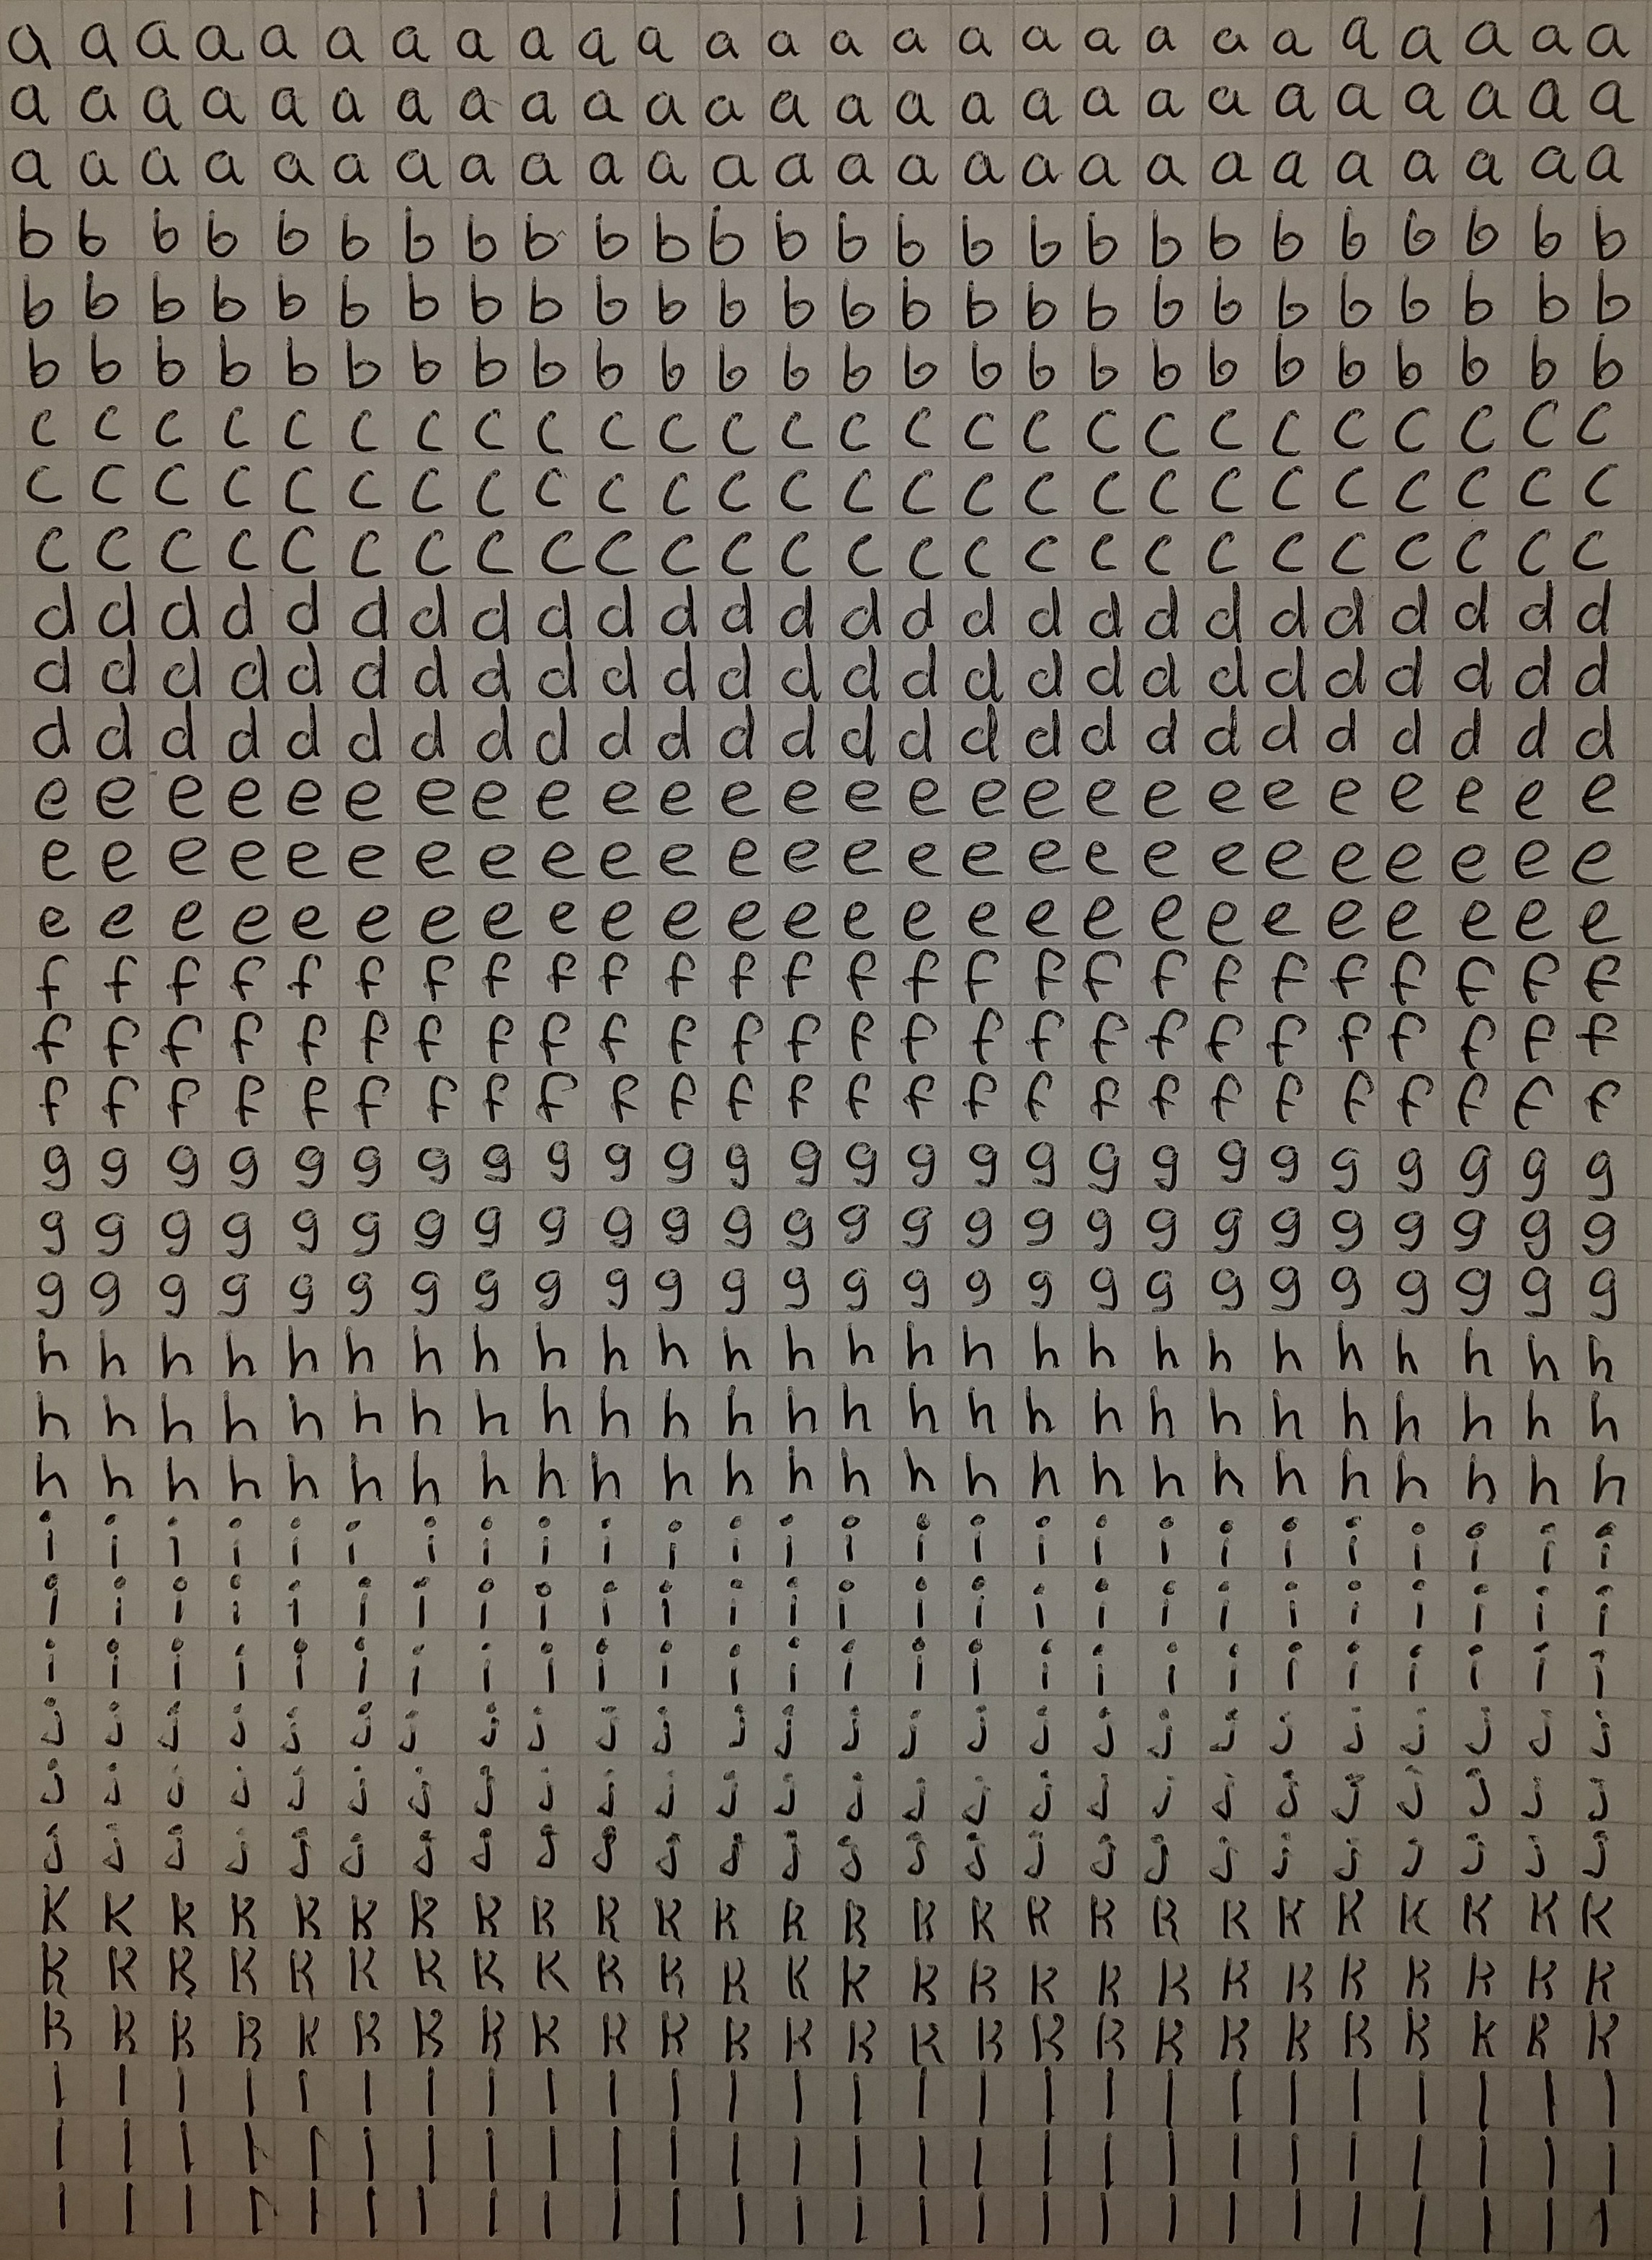 a a a a a a a a a a a a a a a a a a a a a a a a a a
a a a a a a a a a a a a a a a a a a a a a a a a a a
a a a a a a a a a a a a a a a a a a a a a a a a a a
b b b b b b b b b b b b b b b b b b b b b b b b b b
b b b b b b b b b b b b b b b b b b b b b b b b b b
b b b b b b b b b b b b b b b b b b b b b b b b b b
c c c c c c c c c c c c c c c c c c c c c c c c c c
c c c c c c c c c c c c c c c c c c c c c c c c c c
c c c c c c c c c c c c c c c c c c c c c c c c c c
d d d d d d d d d d d d d d d d d d d d d d d d d d
d d d d d d d d d d d d d d d d d d d d d d d d d d
d d d d d d d d d d d d d d d d d d d d d d d d d d
e e e e e e e e e e e e e e e e e e e e e e e e e e
e e e e e e e e e e e e e e e e e e e e e e e e e e
e e e e e e e e e e e e e e e e e e e e e e e e e e
f f f f f f f f f f f f f f f f f f f f f f f f f f
f f f f f f f f f f f f f f f f f f f f f f f f f f
f f f f f f f f f f f f f f f f f f f f f f f f f f
g g g g g g g g g g g g g g g g g g g g g g g g g g
g g g g g g g g g g g g g g g g g g g g g g g g g g
g g g g g g g g g g g g g g g g g g g g g g g g g g
h h h h h h h h h h h h h h h h h h h h h h h h h h
h h h h h h h h h h h h h h h h h h h h h h h h h h
h h h h h h h h h h h h h h h h h h h h h h h h h h
i i i i i i i i i i i i i i i i i i i i i i i i i i
i i i i i i i i i i i i i i i i i i i i i i i i i i
i i i i i i i i i i i i i i i i i i i i i i i i i i
j j j j j j j j j j j j j j j j j j j j j j j j j j
j j j j j j j j j j j j j j j j j j j j j j j j j j
j j j j j j j j j j j j j j j j j j j j j j j j j j
k k k k k k k k k k k k k k k k k k k k k k k k k k
k k k k k k k k k k k k k k k k k k k k k k k k k k
k k k k k k k k k k k k k k k k k k k k k k k k k k
l l l l l l l l l l l l l l l l l l l l l l l l l l
l l l l l l l l l l l l l l l l l l l l l l l l l l
l l l l l l l l l l l l l l l l l l l l l l l l l l